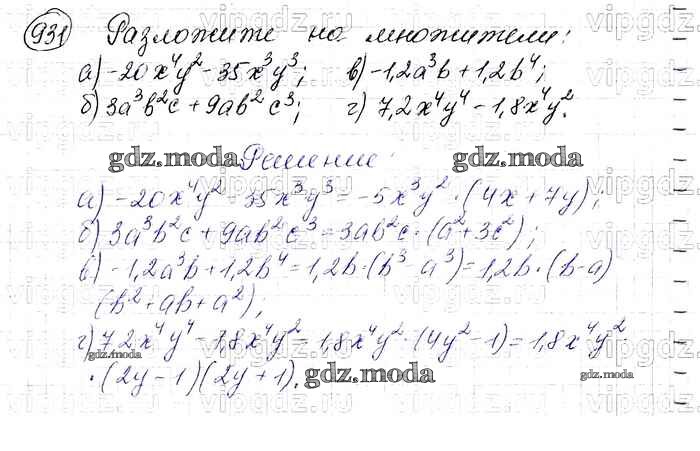 931 Разложите на множители:
а) -20x⁴y² - 35x³y³; в) -1,2a³b + 1,2b⁴;
б) 3a³b²c + 9ab²c³; г) 7,2x⁴y⁴ - 1,8x⁴y².
gdz.moda Решение: gdz.moda
а) -20x⁴y² - 35x³y³ = -5x³y² · (4x + 7y);
б) 3a³b²c + 9ab²c³ = 3ab²c · (a² + 3c²);
в) -1,2a³b + 1,2b⁴ = 1,2b · (b³ - a³) = 1,2b · (b - a)
(b² + ab + a²);
г) 7,2x⁴y⁴ - 1,8x⁴y² = 1,8x⁴y² · (4y² - 1) = 1,8x⁴y² ·
gdz.moda
· (2y - 1)(2y + 1). gdz.moda gdz.moda